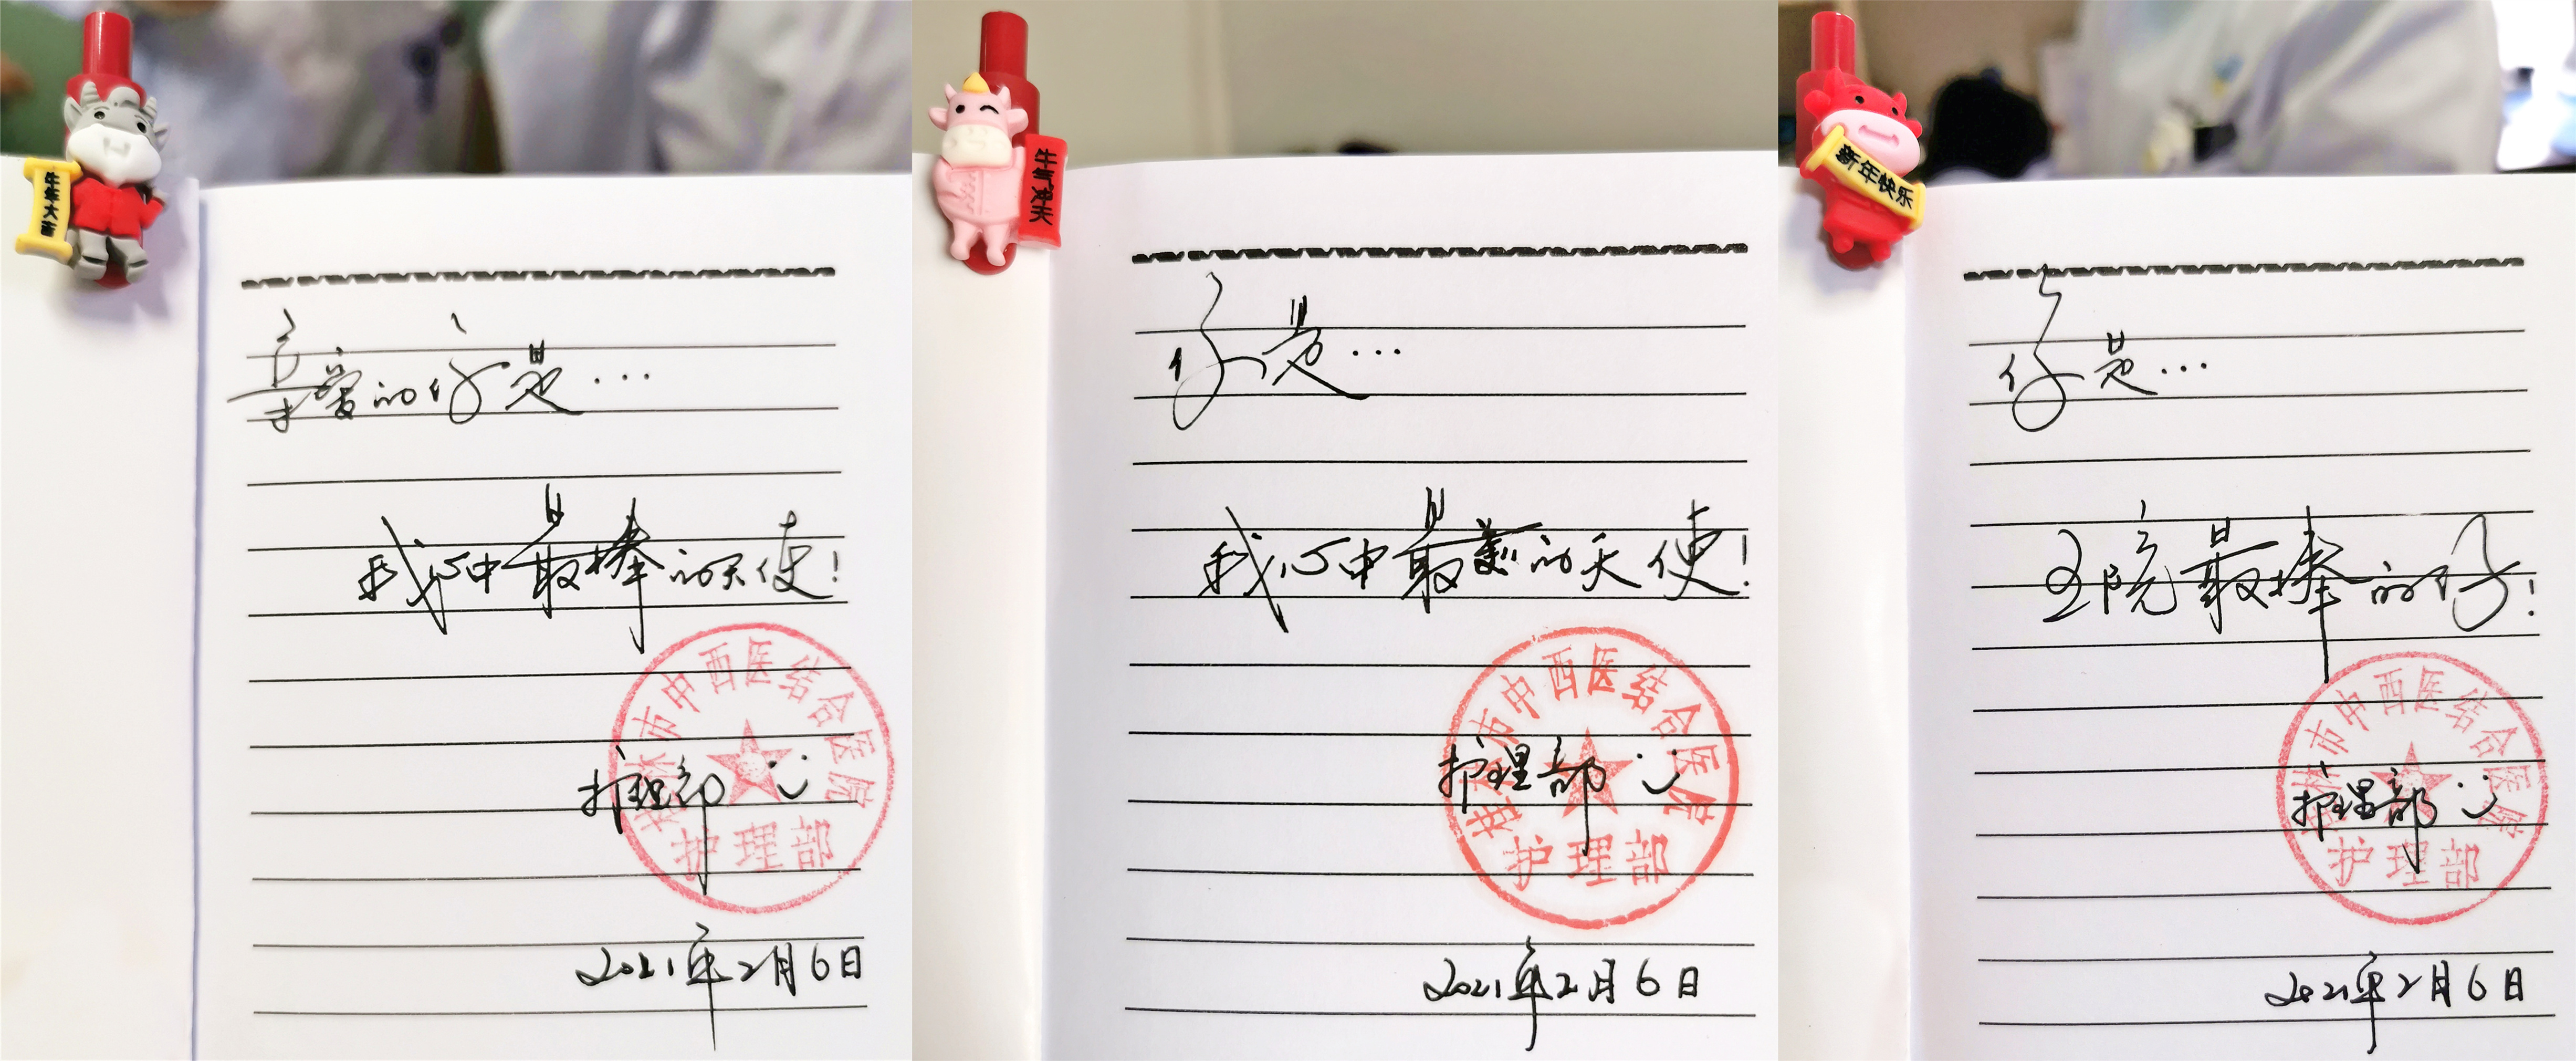 牛年大吉
亲爱的你是...
我心中最棒的天使!
桂林市中西医结合医院
护理部
护理部
2021年2月6日
牛气冲天
你是...
我心中最美的天使!
桂林市中西医结合医院
护理部
护理部
2021年2月6日
新年快乐
你是...
全院最棒的你!
桂林市中西医结合医院
护理部
护理部
2021年2月6日